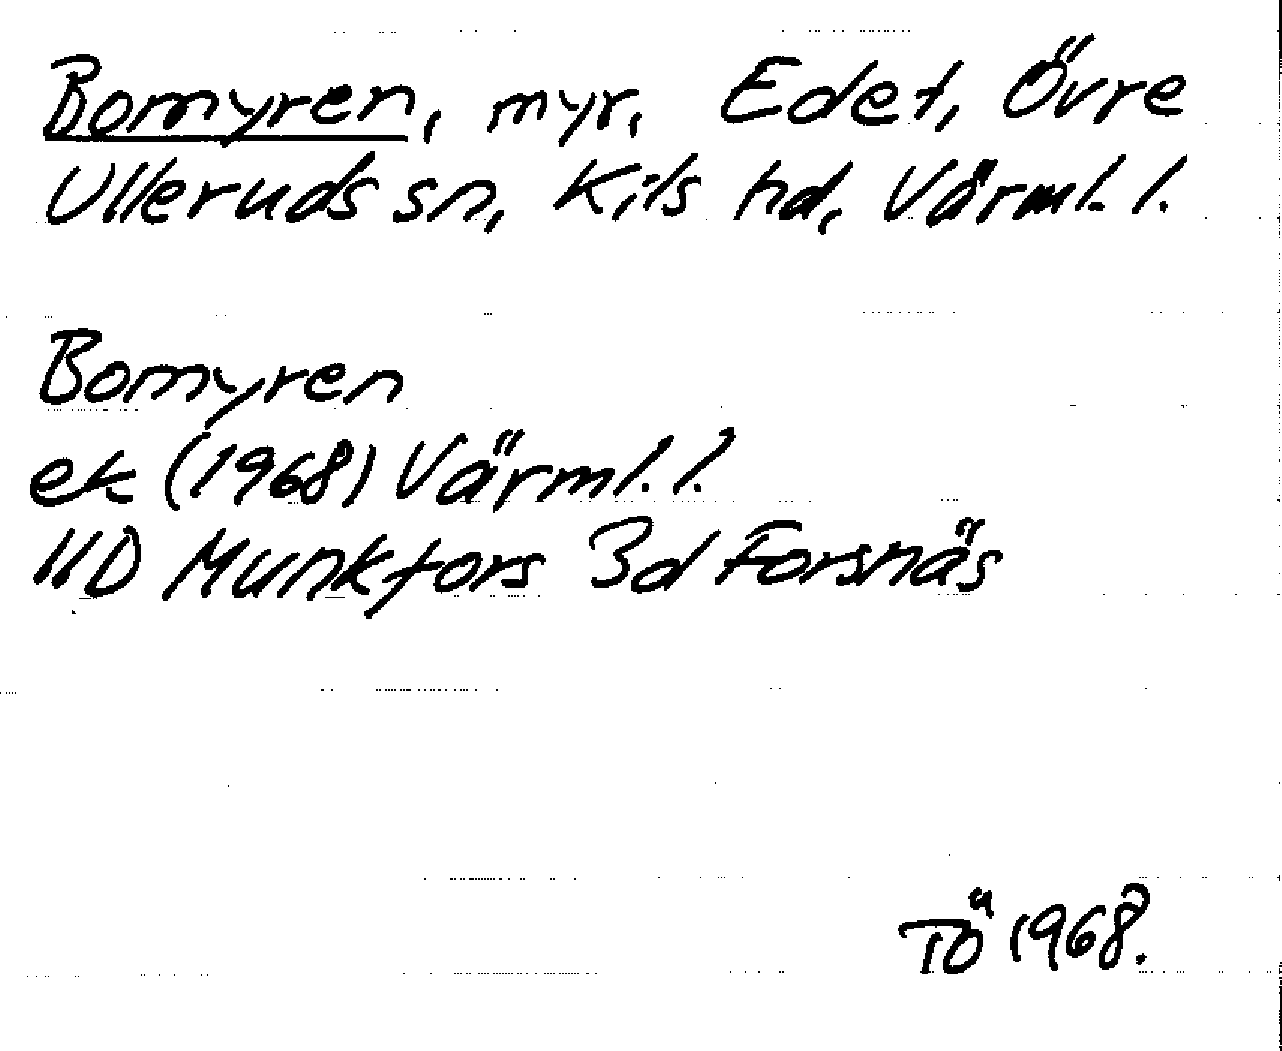 Bomyren, myr, Edet, Övre
Ulleruds sn, Kils hd, Värml. l.
Bomyren
ek (1968) Värml. l.
11D Munkfors 3d Forsnäs
TÖ 1968.